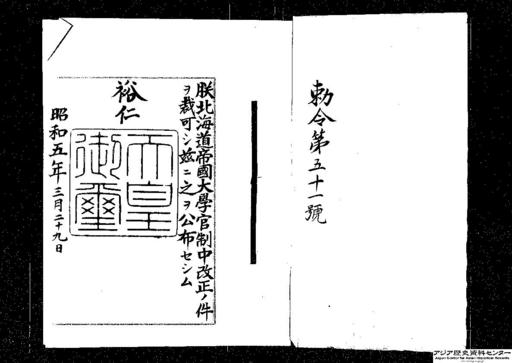 勅令第五十一號
朕北海道帝國大學官制中改正ノ件
ヲ裁可シ茲ニ之ヲ公布セシム
裕仁
天皇御璽
昭和五年三月二十九日
アジア歴史資料センター
Japan Center for Asian Historical Records